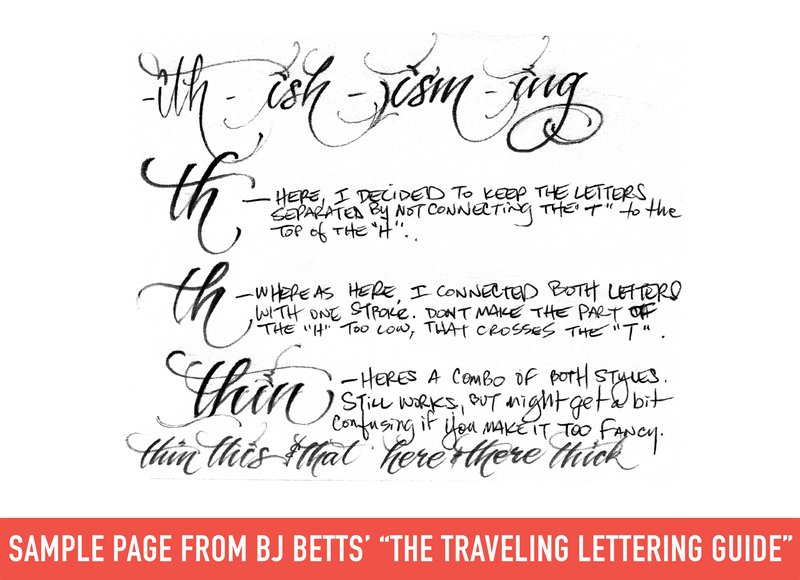 -ith - ish - ism - ing
th — HERE, I DECIDED TO KEEP THE LETTERS
SEPARATED BY NOT CONNECTING THE "T" to the
TOP of THE "H"..
th — WHEREAS HERE, I CONNECTED BOTH LETTERS
WITH ONE STROKE. DONT MAKE THE PART OF
THE "H" TOO LOW, THAT CROSSES THE "T".
thin — HERES A COMBO OF BOTH STYLES.
STILL WORKS, BUT might get a bit
confusing if you MAKE IT TOO FANCY.
thin this & that here & there thick
SAMPLE PAGE FROM BJ BETTS' “THE TRAVELING LETTERING GUIDE”